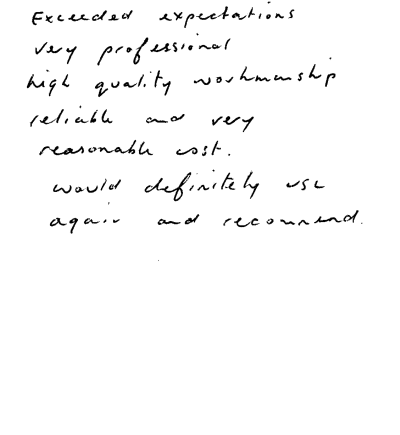 Exceeded expectations
very professional
high quality workmanship
reliable and very
reasonable cost.
would definitely use
again and recommend.